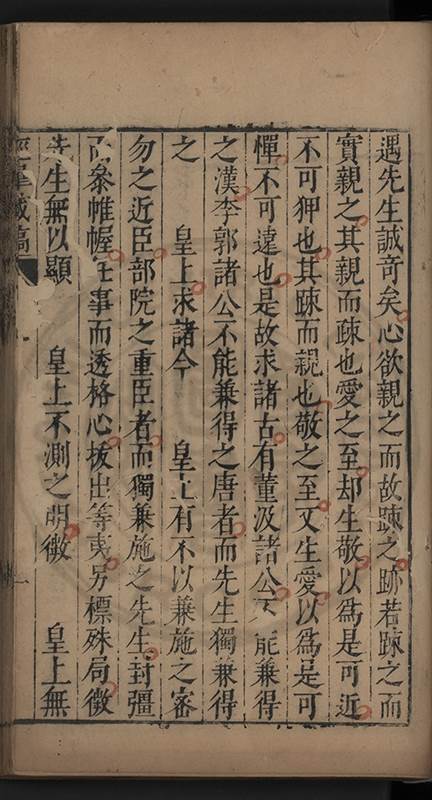 遇先生誠奇矣心欲親之而故踈之跡若踈之而
實親之其親而踈也愛之至却生敬以爲是可近
不可狎也其踈而親也敬之至又生愛以爲是可
憚不可遠也是故求諸古有董汲諸公不能兼得
之漢李郭諸公不能兼得之唐者而先生獨兼得
之 皇上求諸今 皇上有不以兼施之密
勿之近臣部院之重臣者而獨兼施之先生封彊
而叅帷幄任事而透格心拔出等夷另標殊局微
先生無以顯 皇上不測之明微 皇上無